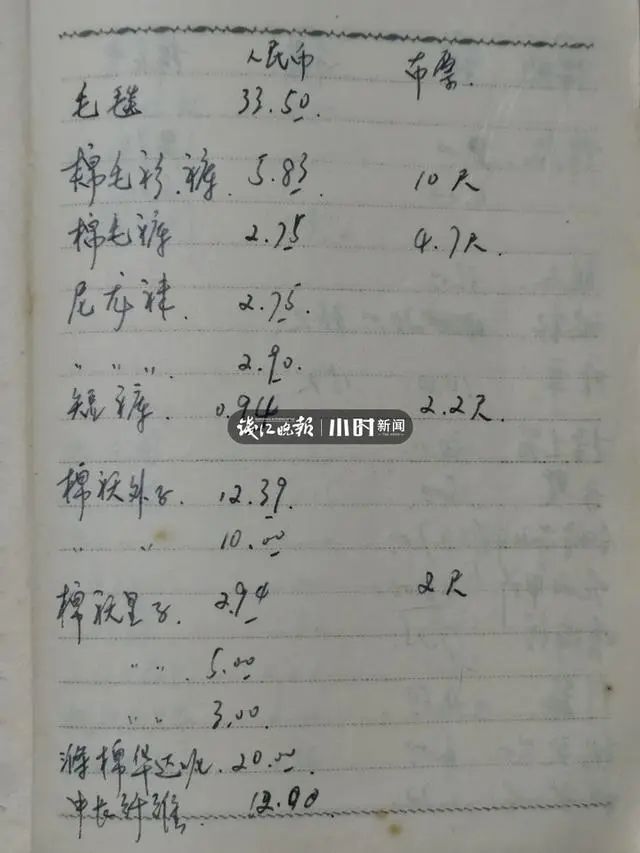 人民币 布票.
毛毯 33.50.
棉毛衫.裤. 5.83 10尺
棉毛裤 2.75 4.7尺.
尼龙袜. 2.75.
〃 〃 〃. 2.90.
短裤. 0.94 2.2尺.
钱江晚报 小时新闻
棉袄外子. 12.39.
〃 〃 10.00
棉袄里子. 2.94 2尺
〃 〃. 5.00
〃 〃 3.00.
涤棉华达呢. 20.00
中长纤维. 12.00